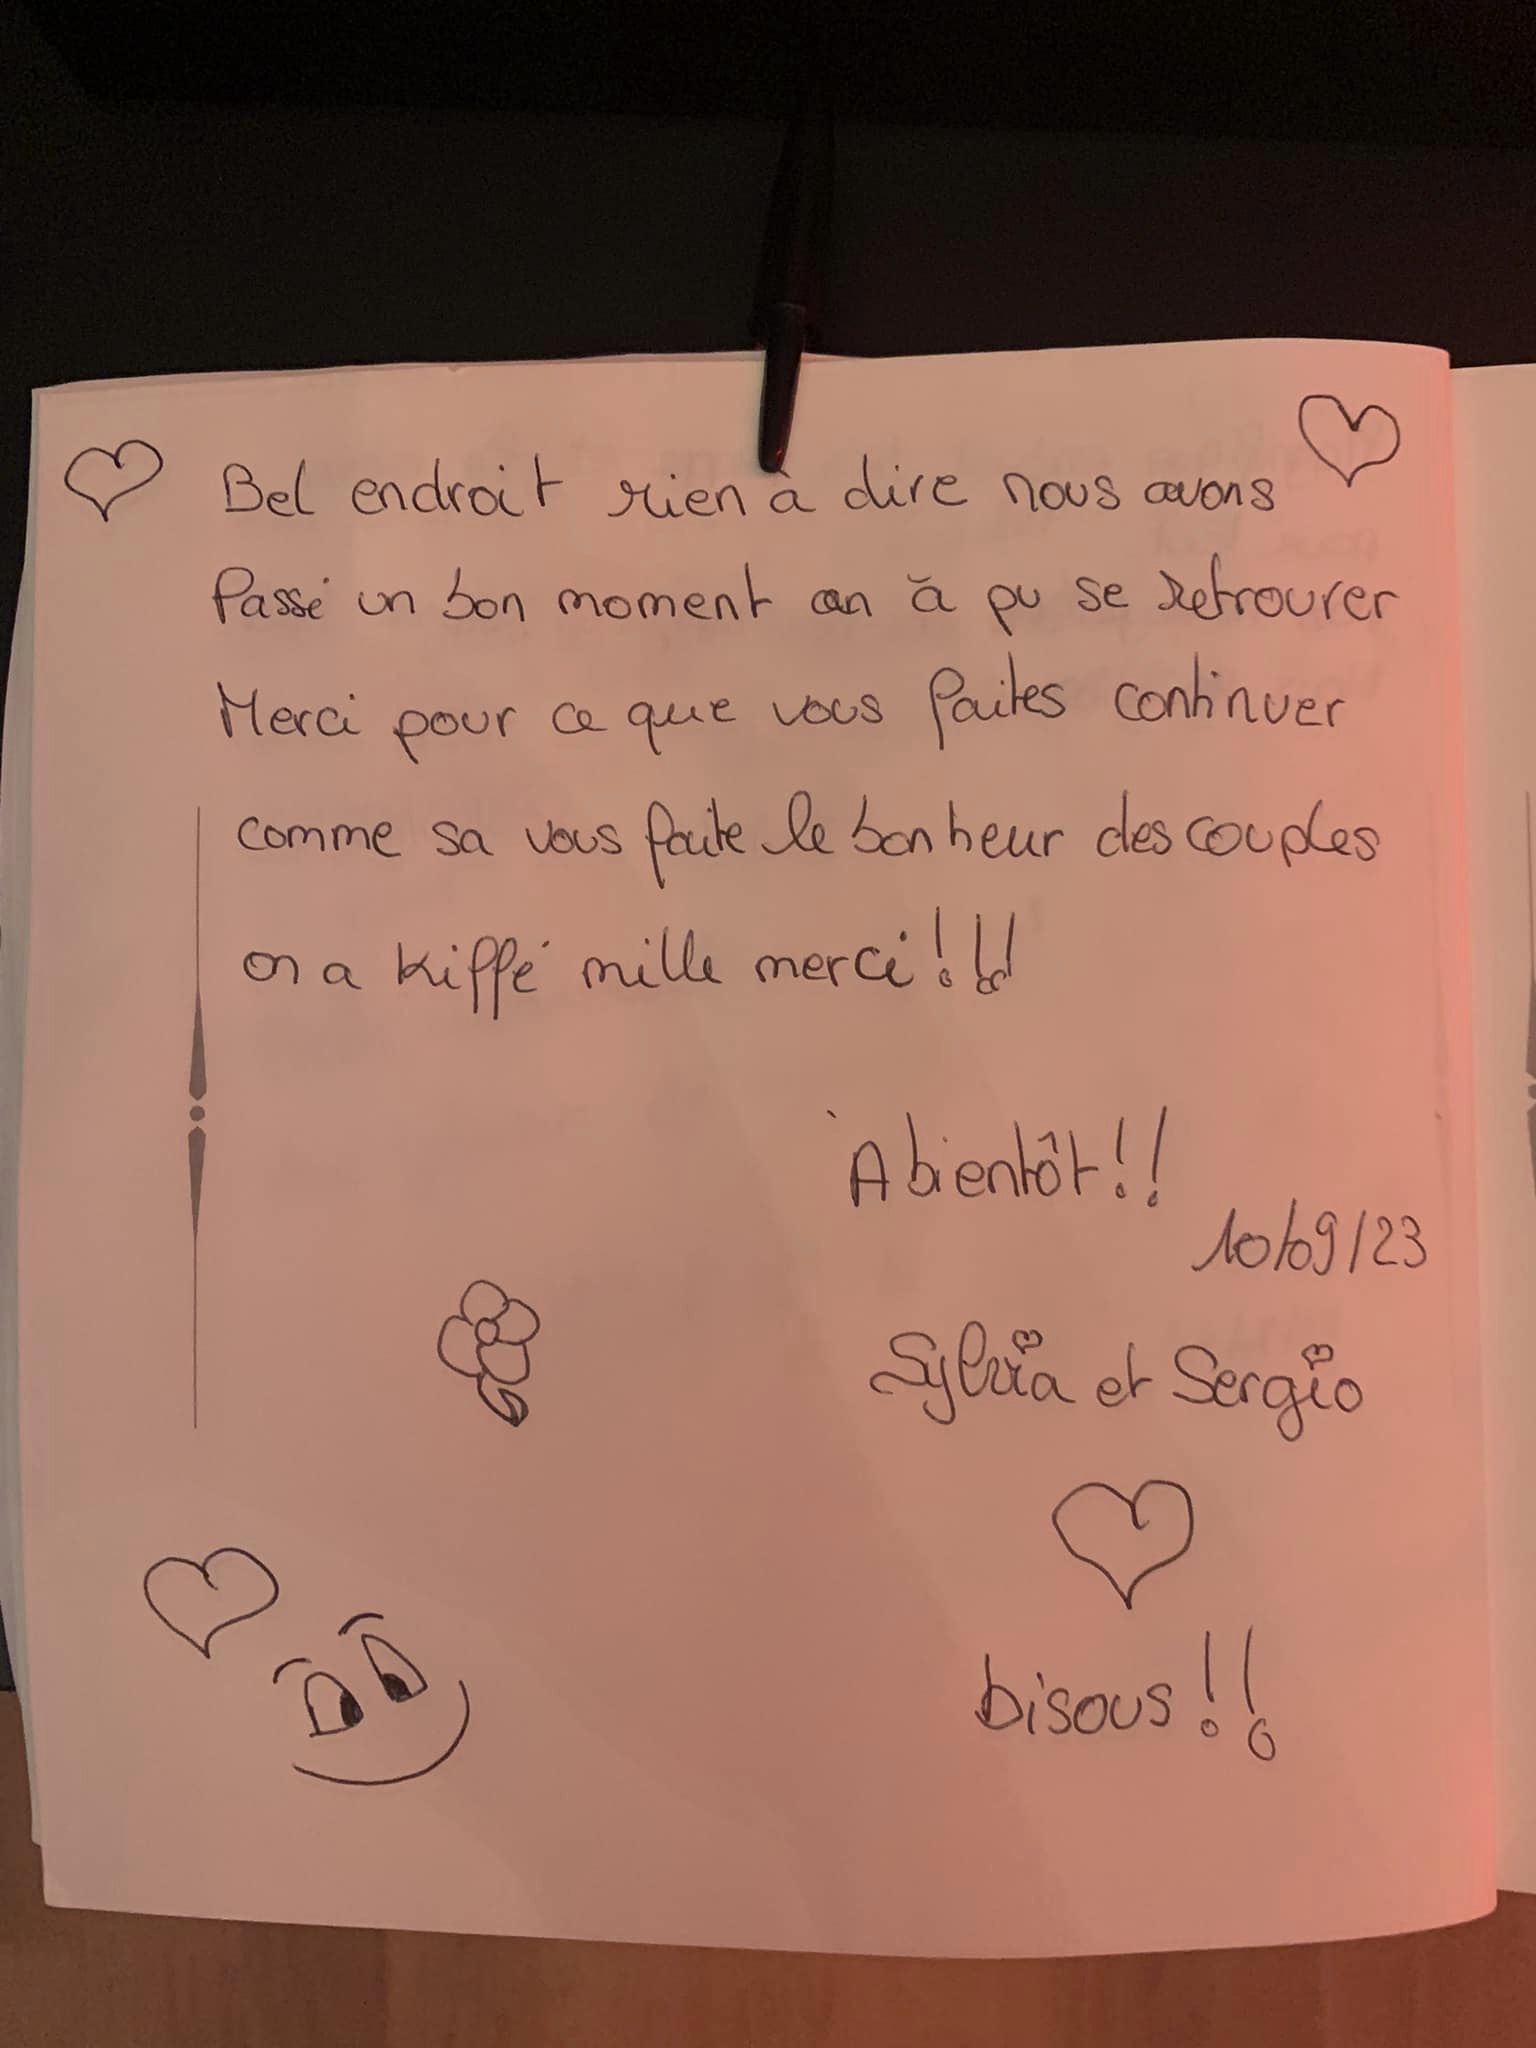 Bel endroit rien à dire nous avons
Passé un bon moment on à pu se retrouver
Merci pour ce que vous faites continuer
comme sa vous faite le bonheur des couples
on a kiffé mille merci!!!
À bientôt!!
10/09/23
Sylvia et Sergio
bisous!!